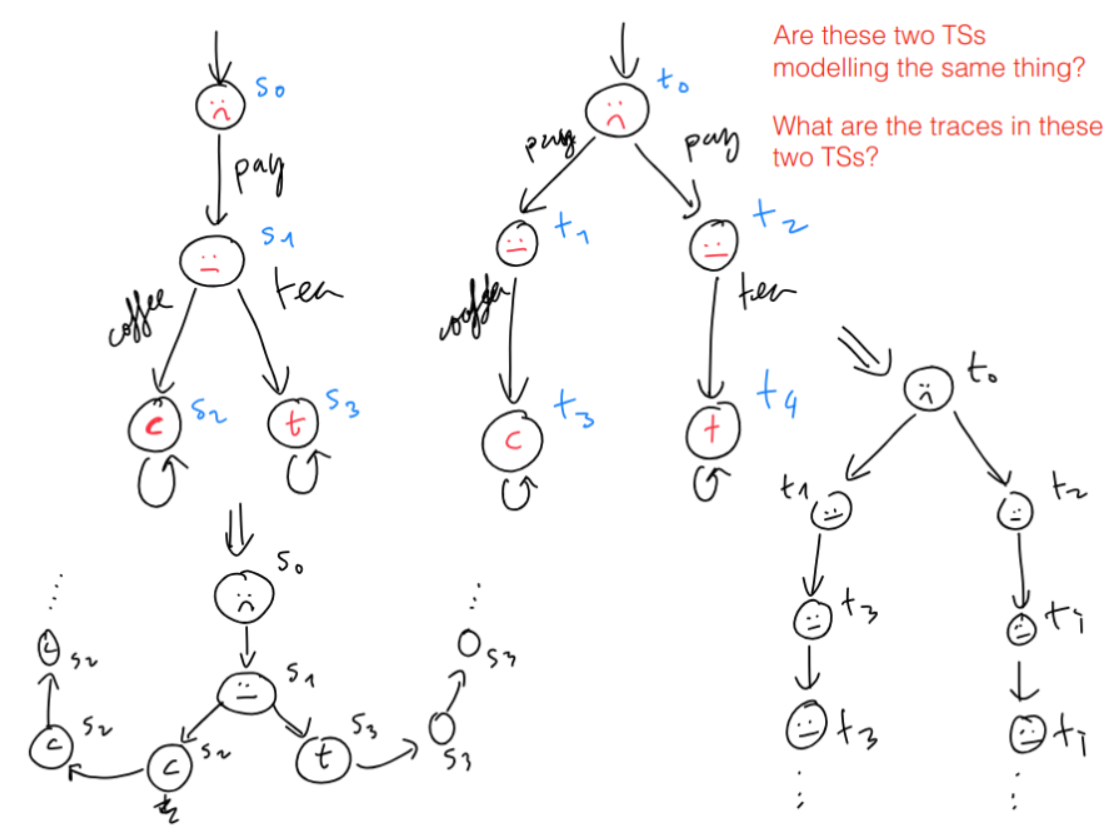 Are these two TSs
modelling the same thing?
What are the traces in these
two TSs?
s0
pay
s1
coffee
tea
c
s2
t
s3
t0
pay
pay
t1
t2
coffee
tea
c
t3
t
t4
s0
s1
c
s2
c
s2
c
s2
t
s3
s3
s3
t0
t1
t2
t3
ti
t3
ti